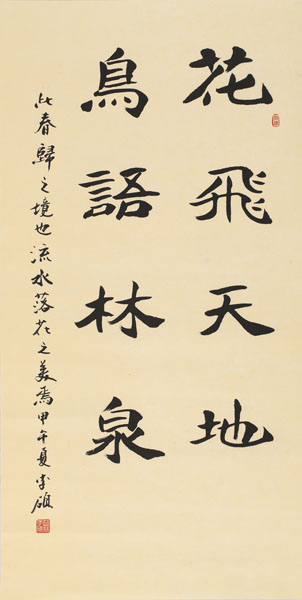 花飛天地
鳥語林泉
此春歸之境也流水落花之美焉甲午夏李碩